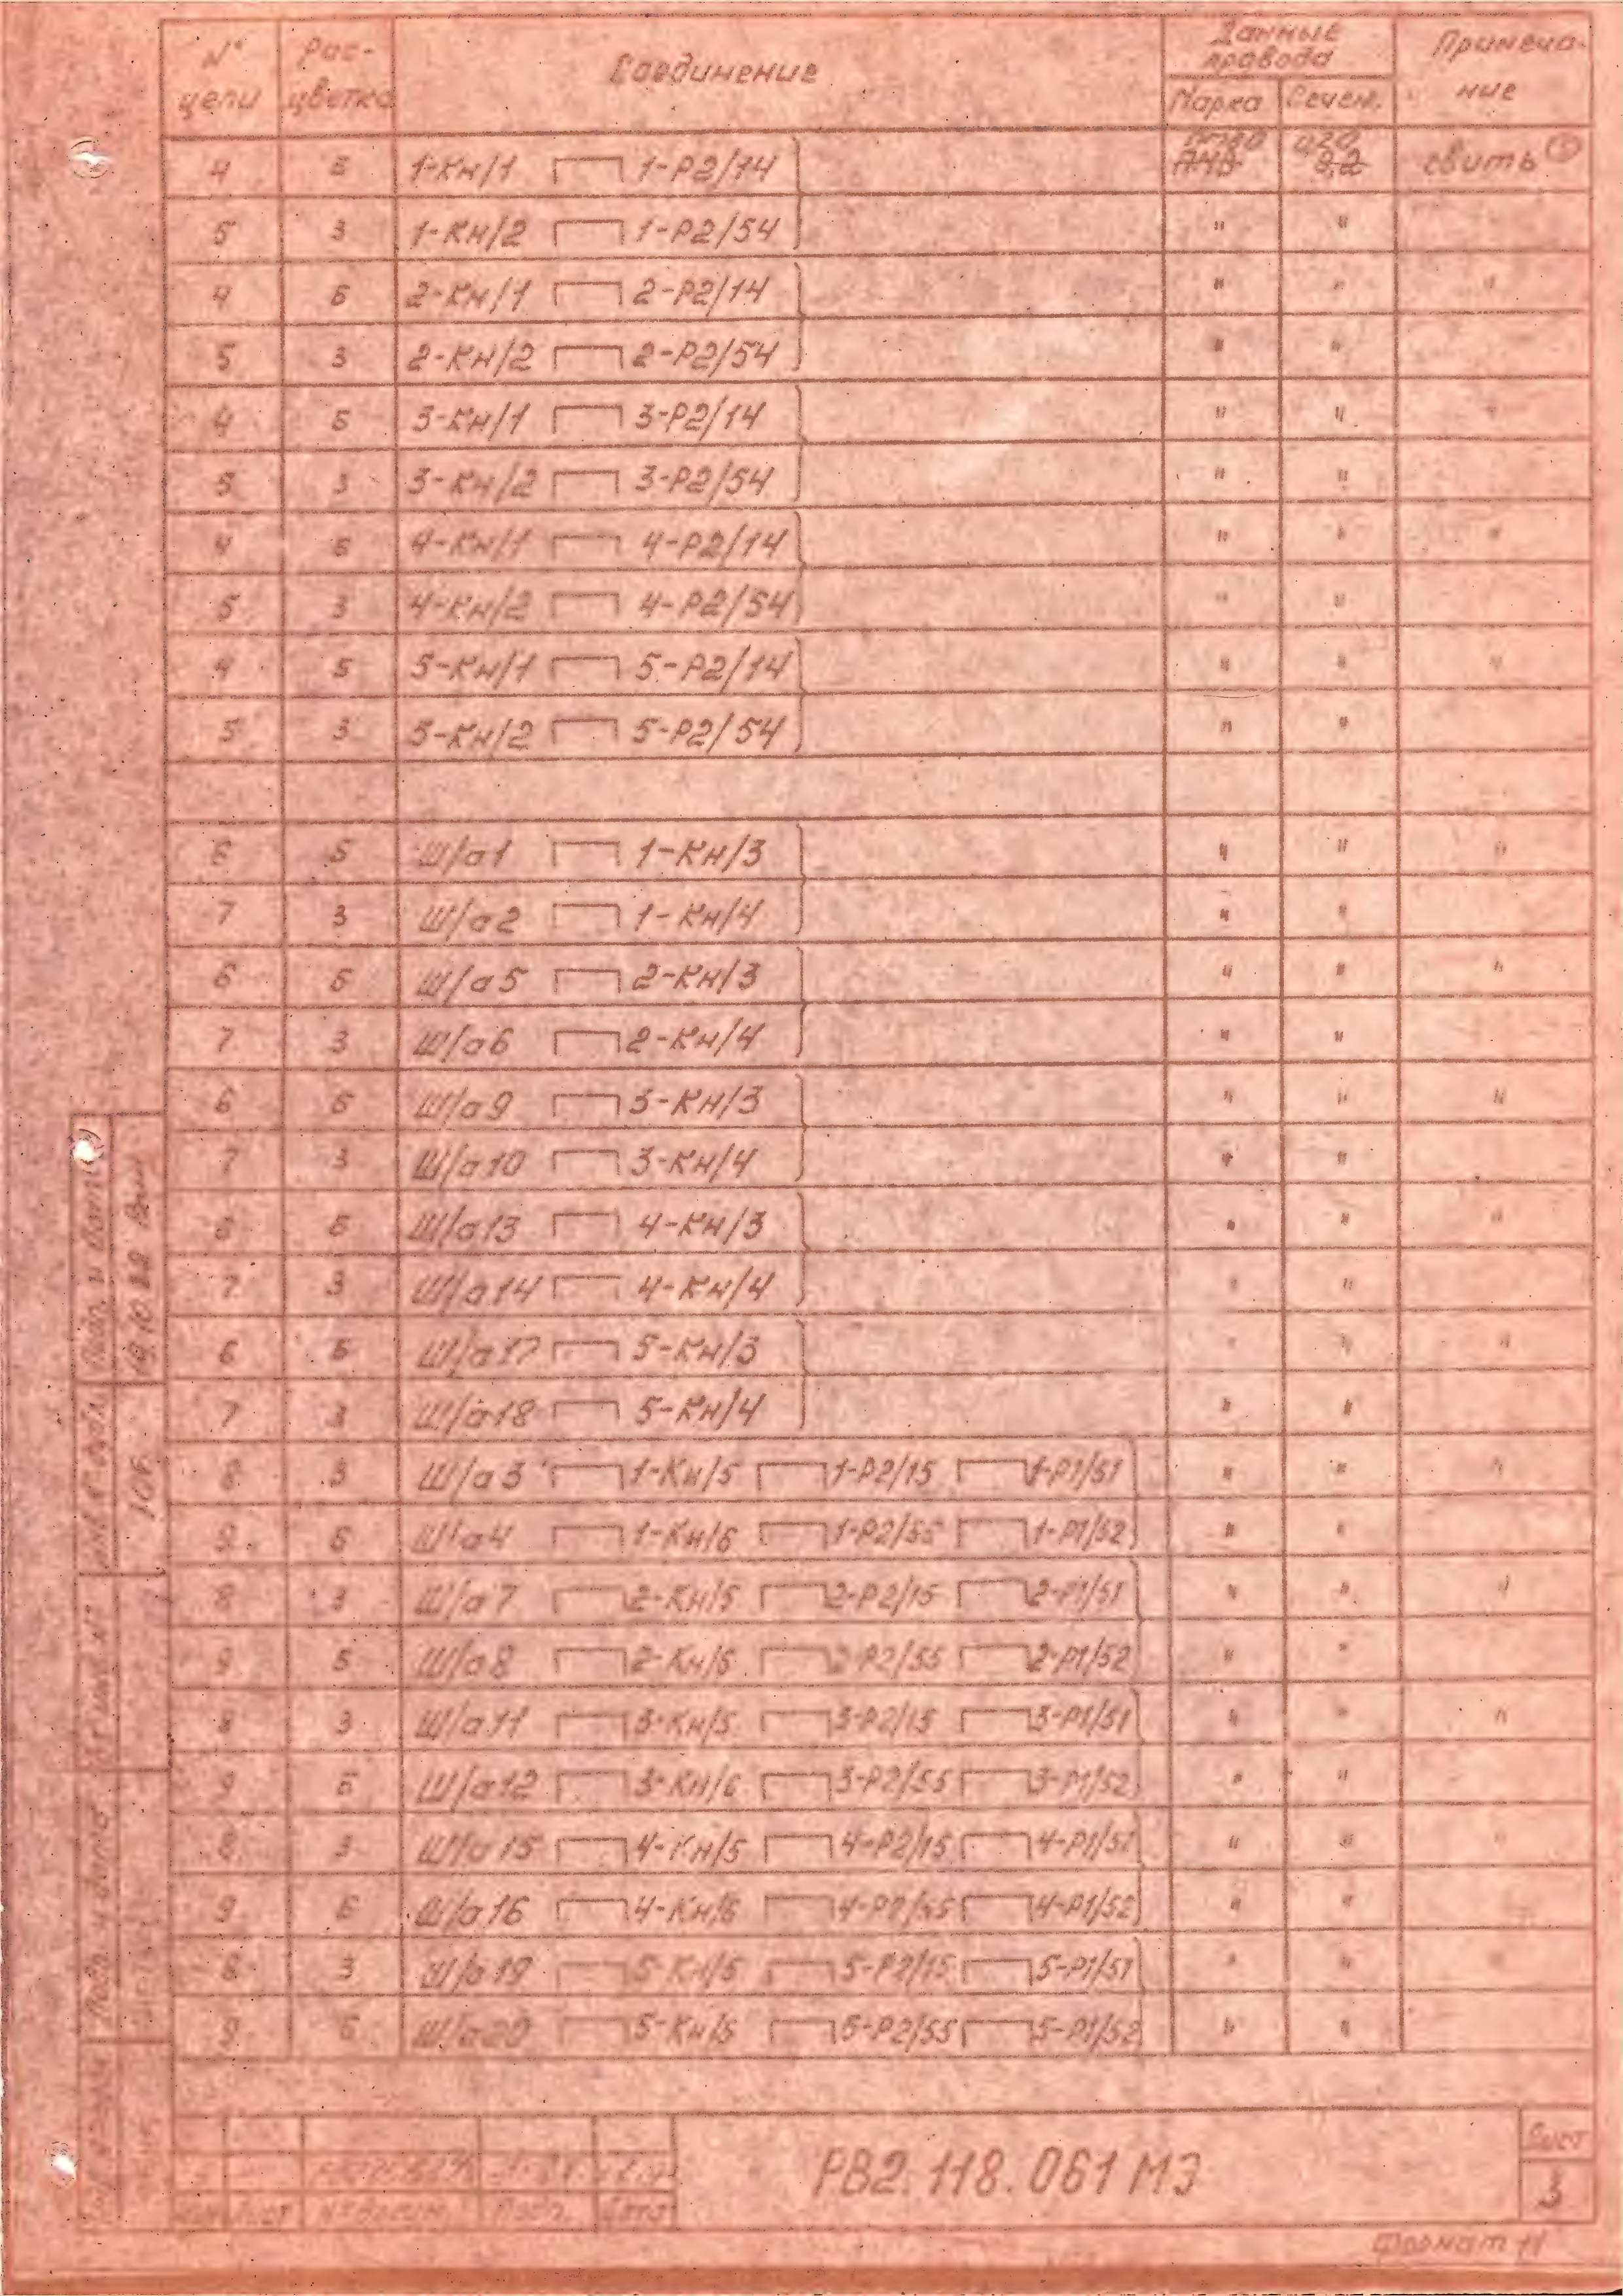 N° цепи Рас-цветка Соединение Данные провода Примеча-ние
Марка Сечен.
4 Б 1-Кн/1 1-Р2/14 0,20 0,2 свить
5 З 1-Кн/2 1-Р2/54 " "
4 Б 2-Кн/1 2-Р2/14 " " "
5 З 2-Кн/2 2-Р2/54 " "
4 Б 3-Кн/1 3-Р2/14 " " "
5 З 3-Кн/2 3-Р2/54 " "
4 Б 4-Кн/1 4-Р2/14 " " "
5 З 4-Кн/2 4-Р2/54 " "
4 Б 5-Кн/1 5-Р2/14 " " "
5 З 5-Кн/2 5-Р2/54 " "
6 Б Ш/а1 1-Кн/3 " " "
7 З Ш/а2 1-Кн/4 " "
6 Б Ш/а5 2-Кн/3 " " "
7 З Ш/а6 2-Кн/4 " "
6 Б Ш/а9 3-Кн/3 " " "
7 З Ш/а10 3-Кн/4 " "
6 Б Ш/а13 4-Кн/3 " " "
7 З Ш/а14 4-Кн/4 " "
6 Б Ш/а17 5-Кн/3 " " "
7 З Ш/а18 5-Кн/4 " "
8 З Ш/а3 1-Кн/5 1-Р2/15 1-Р1/51 " " "
9 Б Ш/а4 1-Кн/6 1-Р2/55 1-Р1/52 " "
8 З Ш/а7 2-Кн/5 2-Р2/15 2-Р1/51 " " "
9 Б Ш/а8 2-Кн/6 2-Р2/55 2-Р1/52 " "
8 З Ш/а11 3-Кн/5 3-Р2/15 3-Р1/51 " " "
9 Б Ш/а12 3-Кн/6 3-Р2/55 3-Р1/52 " "
8 З Ш/а15 4-Кн/5 4-Р2/15 4-Р1/51 " " "
9 Б Ш/а16 4-Кн/6 4-Р2/55 4-Р1/52 " "
8 З Ш/а19 5-Кн/5 5-Р2/15 5-Р1/51 " " "
9 Б Ш/а20 5-Кн/6 5-Р2/55 5-Р1/52 " "
Подп. и дата
Подп. и дата
Лист Подп. Дата
РВ2.118.061 МЭ
Лист
3
Формат 11